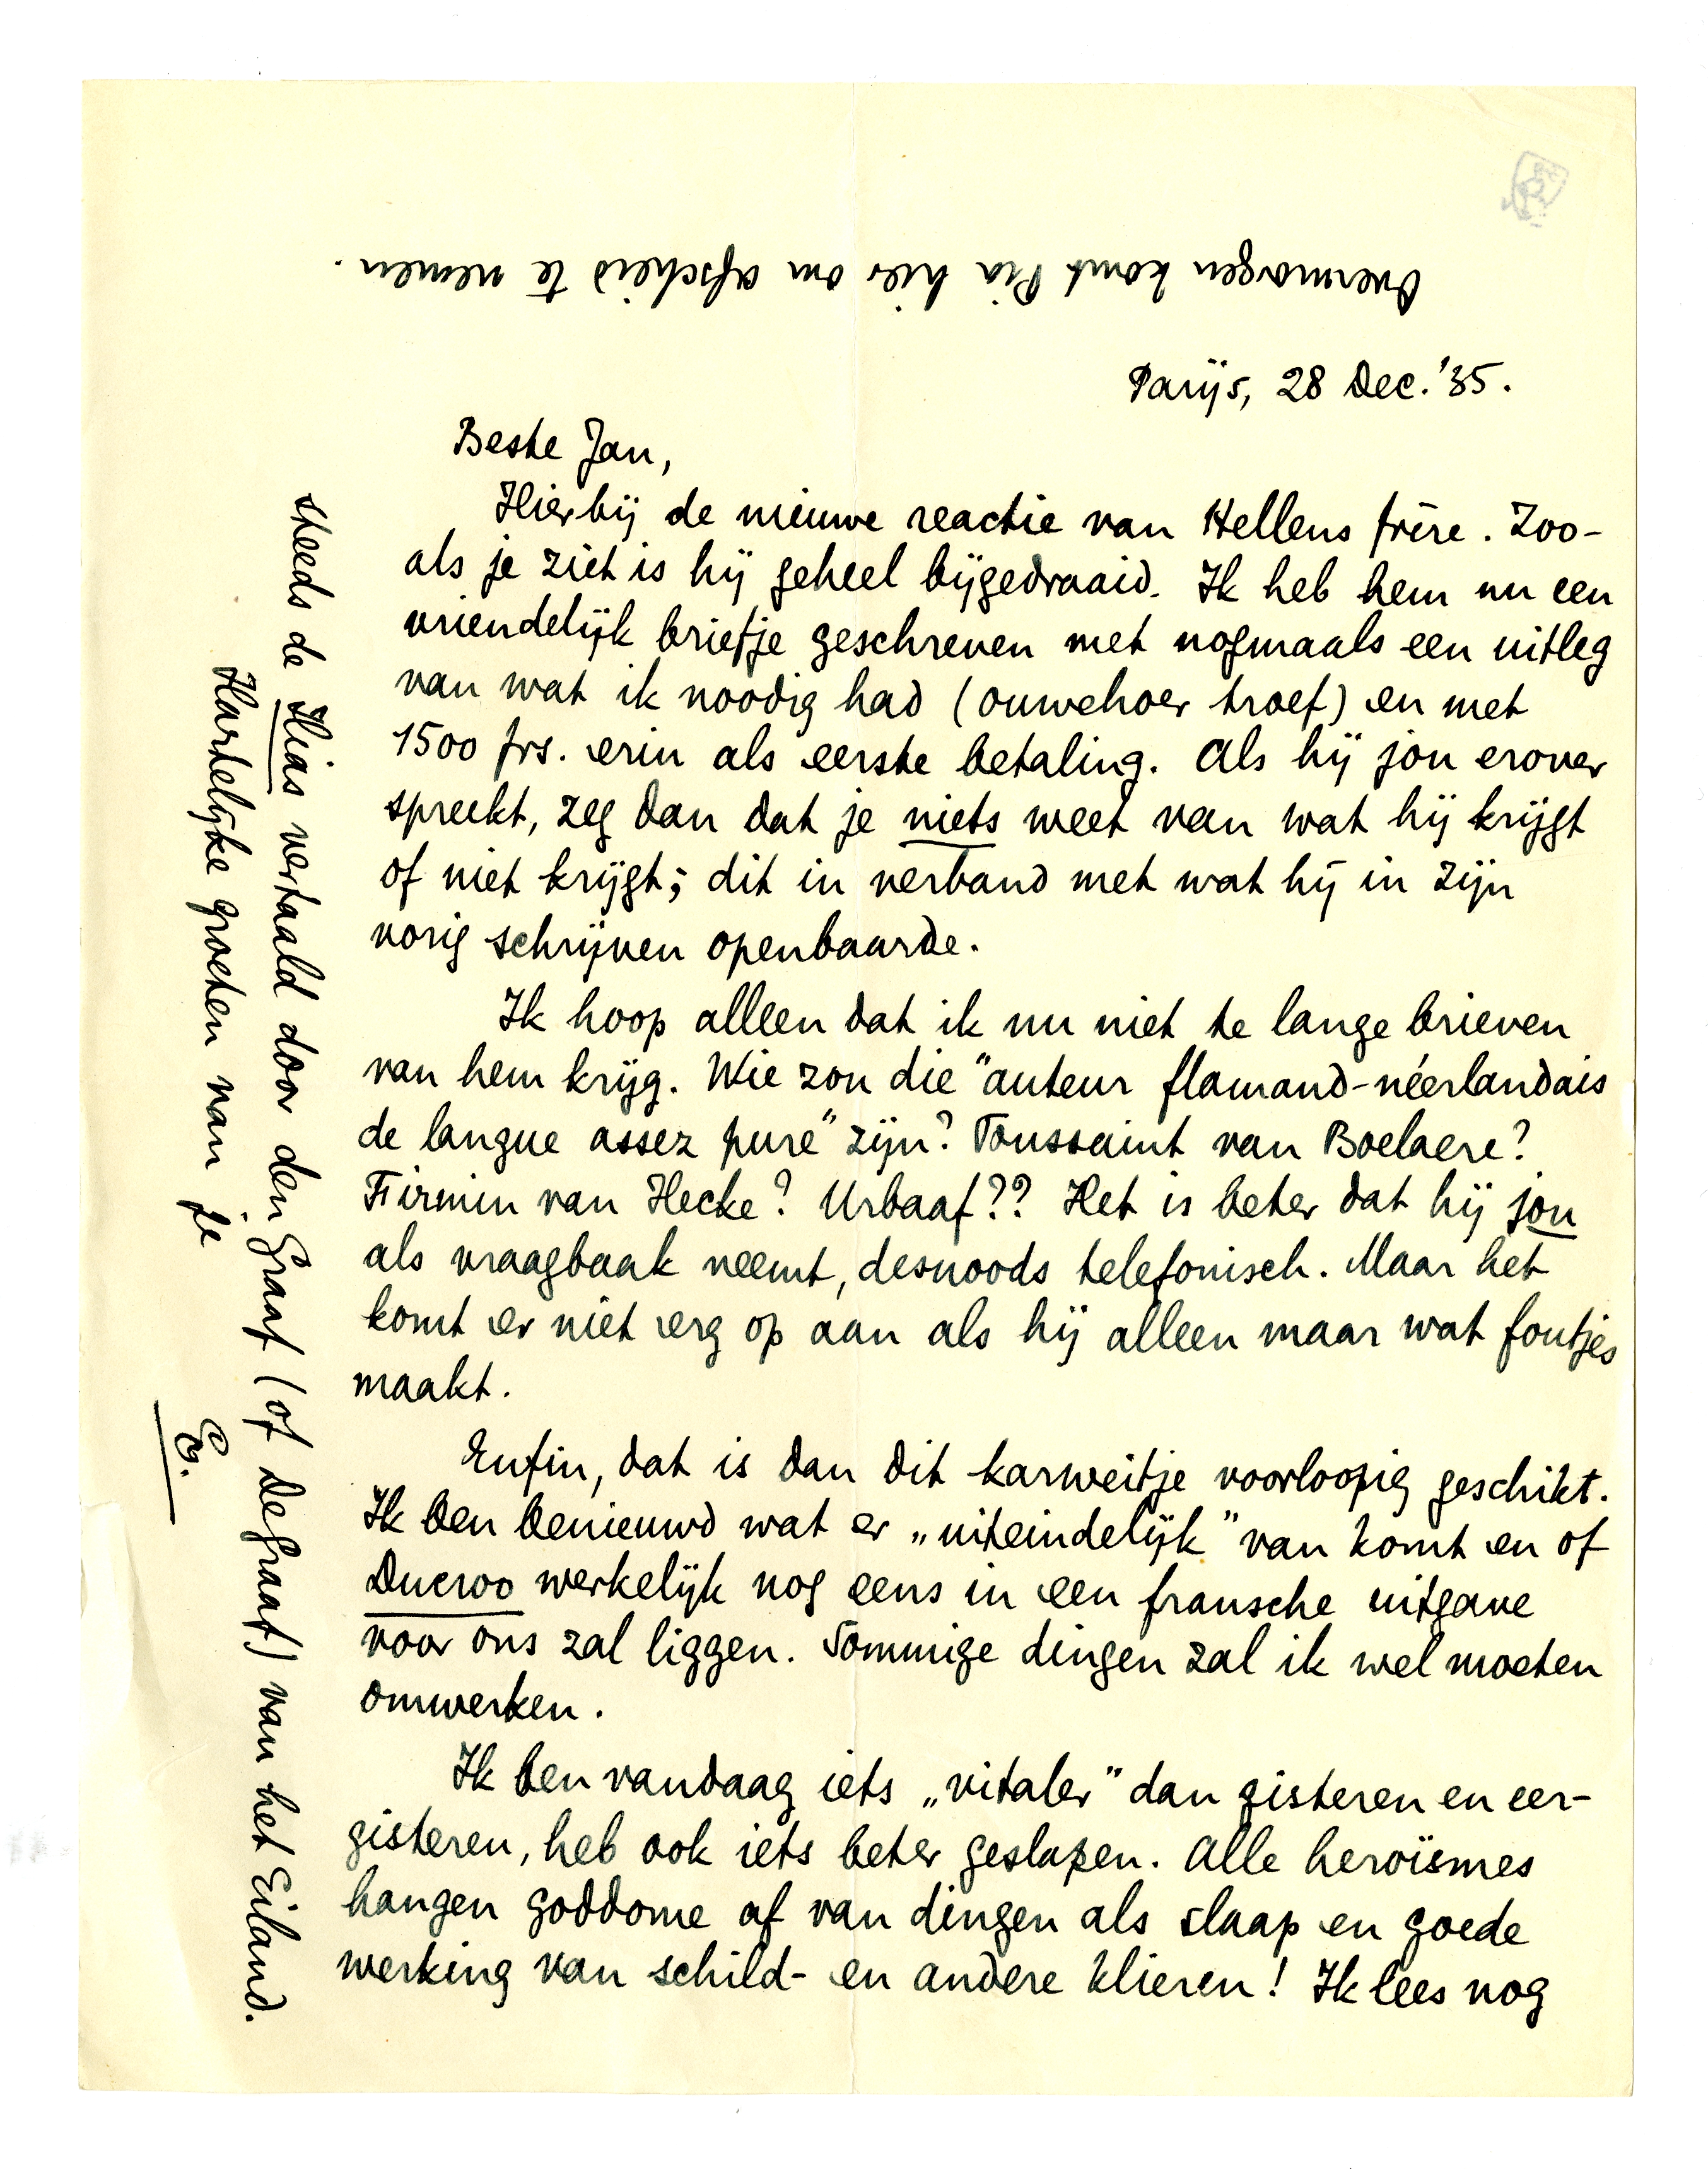 Parijs, 28 Dec. '35.
Beste Jan,
Hierbij de nieuwe reactie van Hellens frère. Zoo-
als je ziet is hij geheel bijgedraaid. Ik heb hem nu een
vriendelijk briefje geschreven met nogmaals een uitleg
van wat ik noodig had (ouwehoer troef) en met
1500 frs. erin als eerste betaling. Als hij jou erover
spreekt, zeg dan dat je niets weet van wat hij krijgt
of niet krijgt; dit in verband met wat hij in zijn
vorig schrijven openbaarde.
Ik hoop alleen dat ik nu niet te lange brieven
van hem krijg. Wie zou die "auteur flamand-néerlandais
de langue assez pure" zijn? Toussaint van Boelaere?
Firmin van Hecke? Urbaaf?? Het is beter dat hij jou
als vraagbaak neemt, desnoods telefonisch. Maar het
komt er niet erg op aan als hij alleen maar wat foutjes
maakt.
Enfin, dat is dan dit karweitje voorloopig geschikt.
Ik ben benieuwd wat er „uiteindelijk" van komt en of
Ducroo werkelijk nog eens in een fransche uitgave
voor ons zal liggen. Sommige dingen zal ik wel moeten
omwerken.
Ik ben vandaag iets „vitaler" dan gisteren en eer-
gisteren, heb ook iets beter geslapen. Alle heroïsmes
hangen goddome af van dingen als slaap en goede
werking van schild- en andere klieren! Ik lees nog
steeds de Ilias vertaald door den Graaf (of De Graaf) van het Eiland.
Hartelijke groeten van je
E.
Overmorgen komt Pia hier om afscheid te nemen.